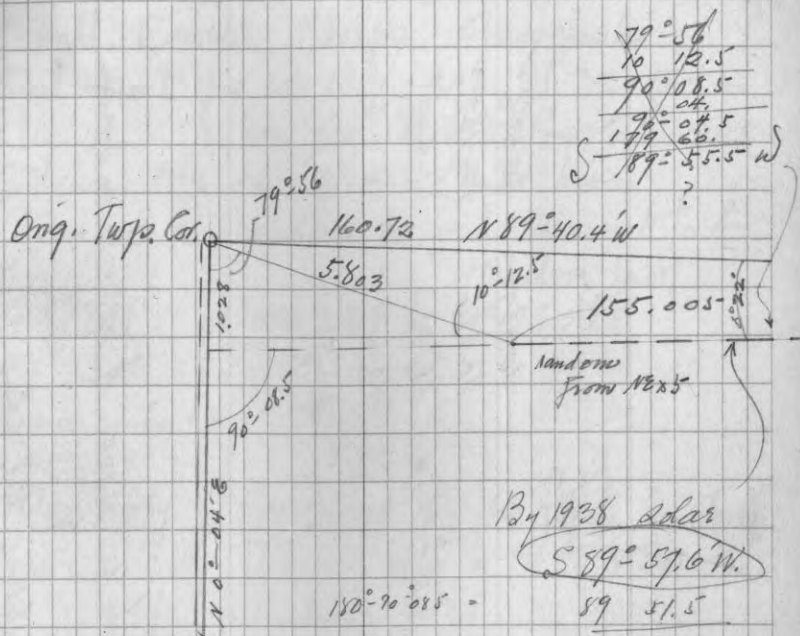 79°-56
10 12.5
90° 08.5
04.
90°- 04.5
179 60.
S 89°- 55.5 W
?
79°-56
Orig. Twp. Cor.
160.72 N 89°-40.4' W
5.803
10°-12.5
155.005
0°22'
1.028
random
From NE x 5
90°-08.5
N 0°-04' E
By 1938 solar
S 89°-51.6' W.
180°-90°-085 = 89 51.5